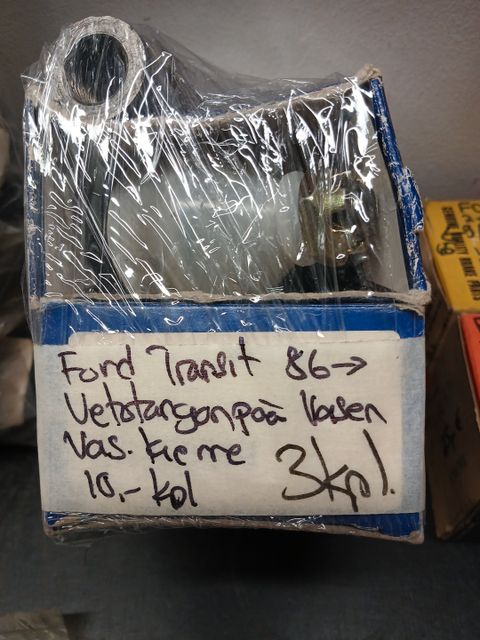 Ford Transit 86→
Vetotangonpää Vasen
Vas. kierre
10,- kpl
3kpl.